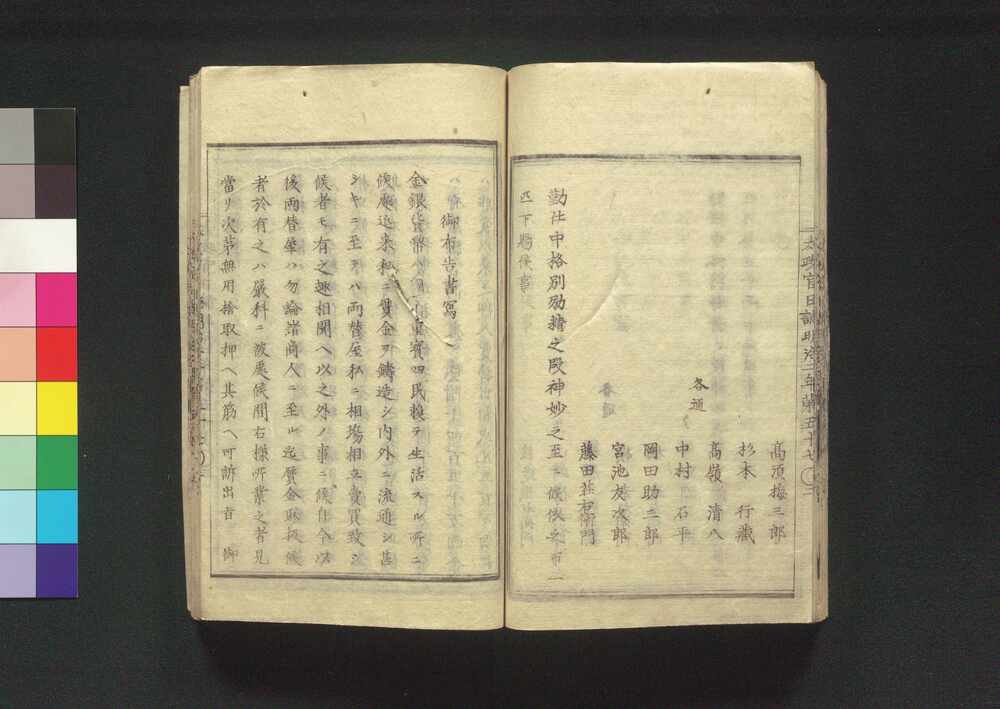 太政官日誌明治二年第五十七
高須揚三郎
杉本行藏
各通
高嶺清八
中村石平
岡田助三郎
宮池友次郎
藤田荘右衛門
勤仕中格別励精之段神妙之至ニ候依之布一
匹下賜候事
御布告書寫
金銀貨幣ハ皇國之寳四民據テ生活スル所ニ
候處近来私ニ贋金ヲ鋳造シ内外ニ流通シ甚
シキニ至テハ両替屋私ニ相場相立賣買致シ
候者モ有之趣相聞ヘ以之外ノ事ニ候自今以
後両替屋ハ勿論諸商人ニ至ル迄贋金取扱候
者於有之ハ嚴科ニ被處候間右様所業之者見
當リ次第無用捨取押ヘ其筋ヘ可訴出旨 御